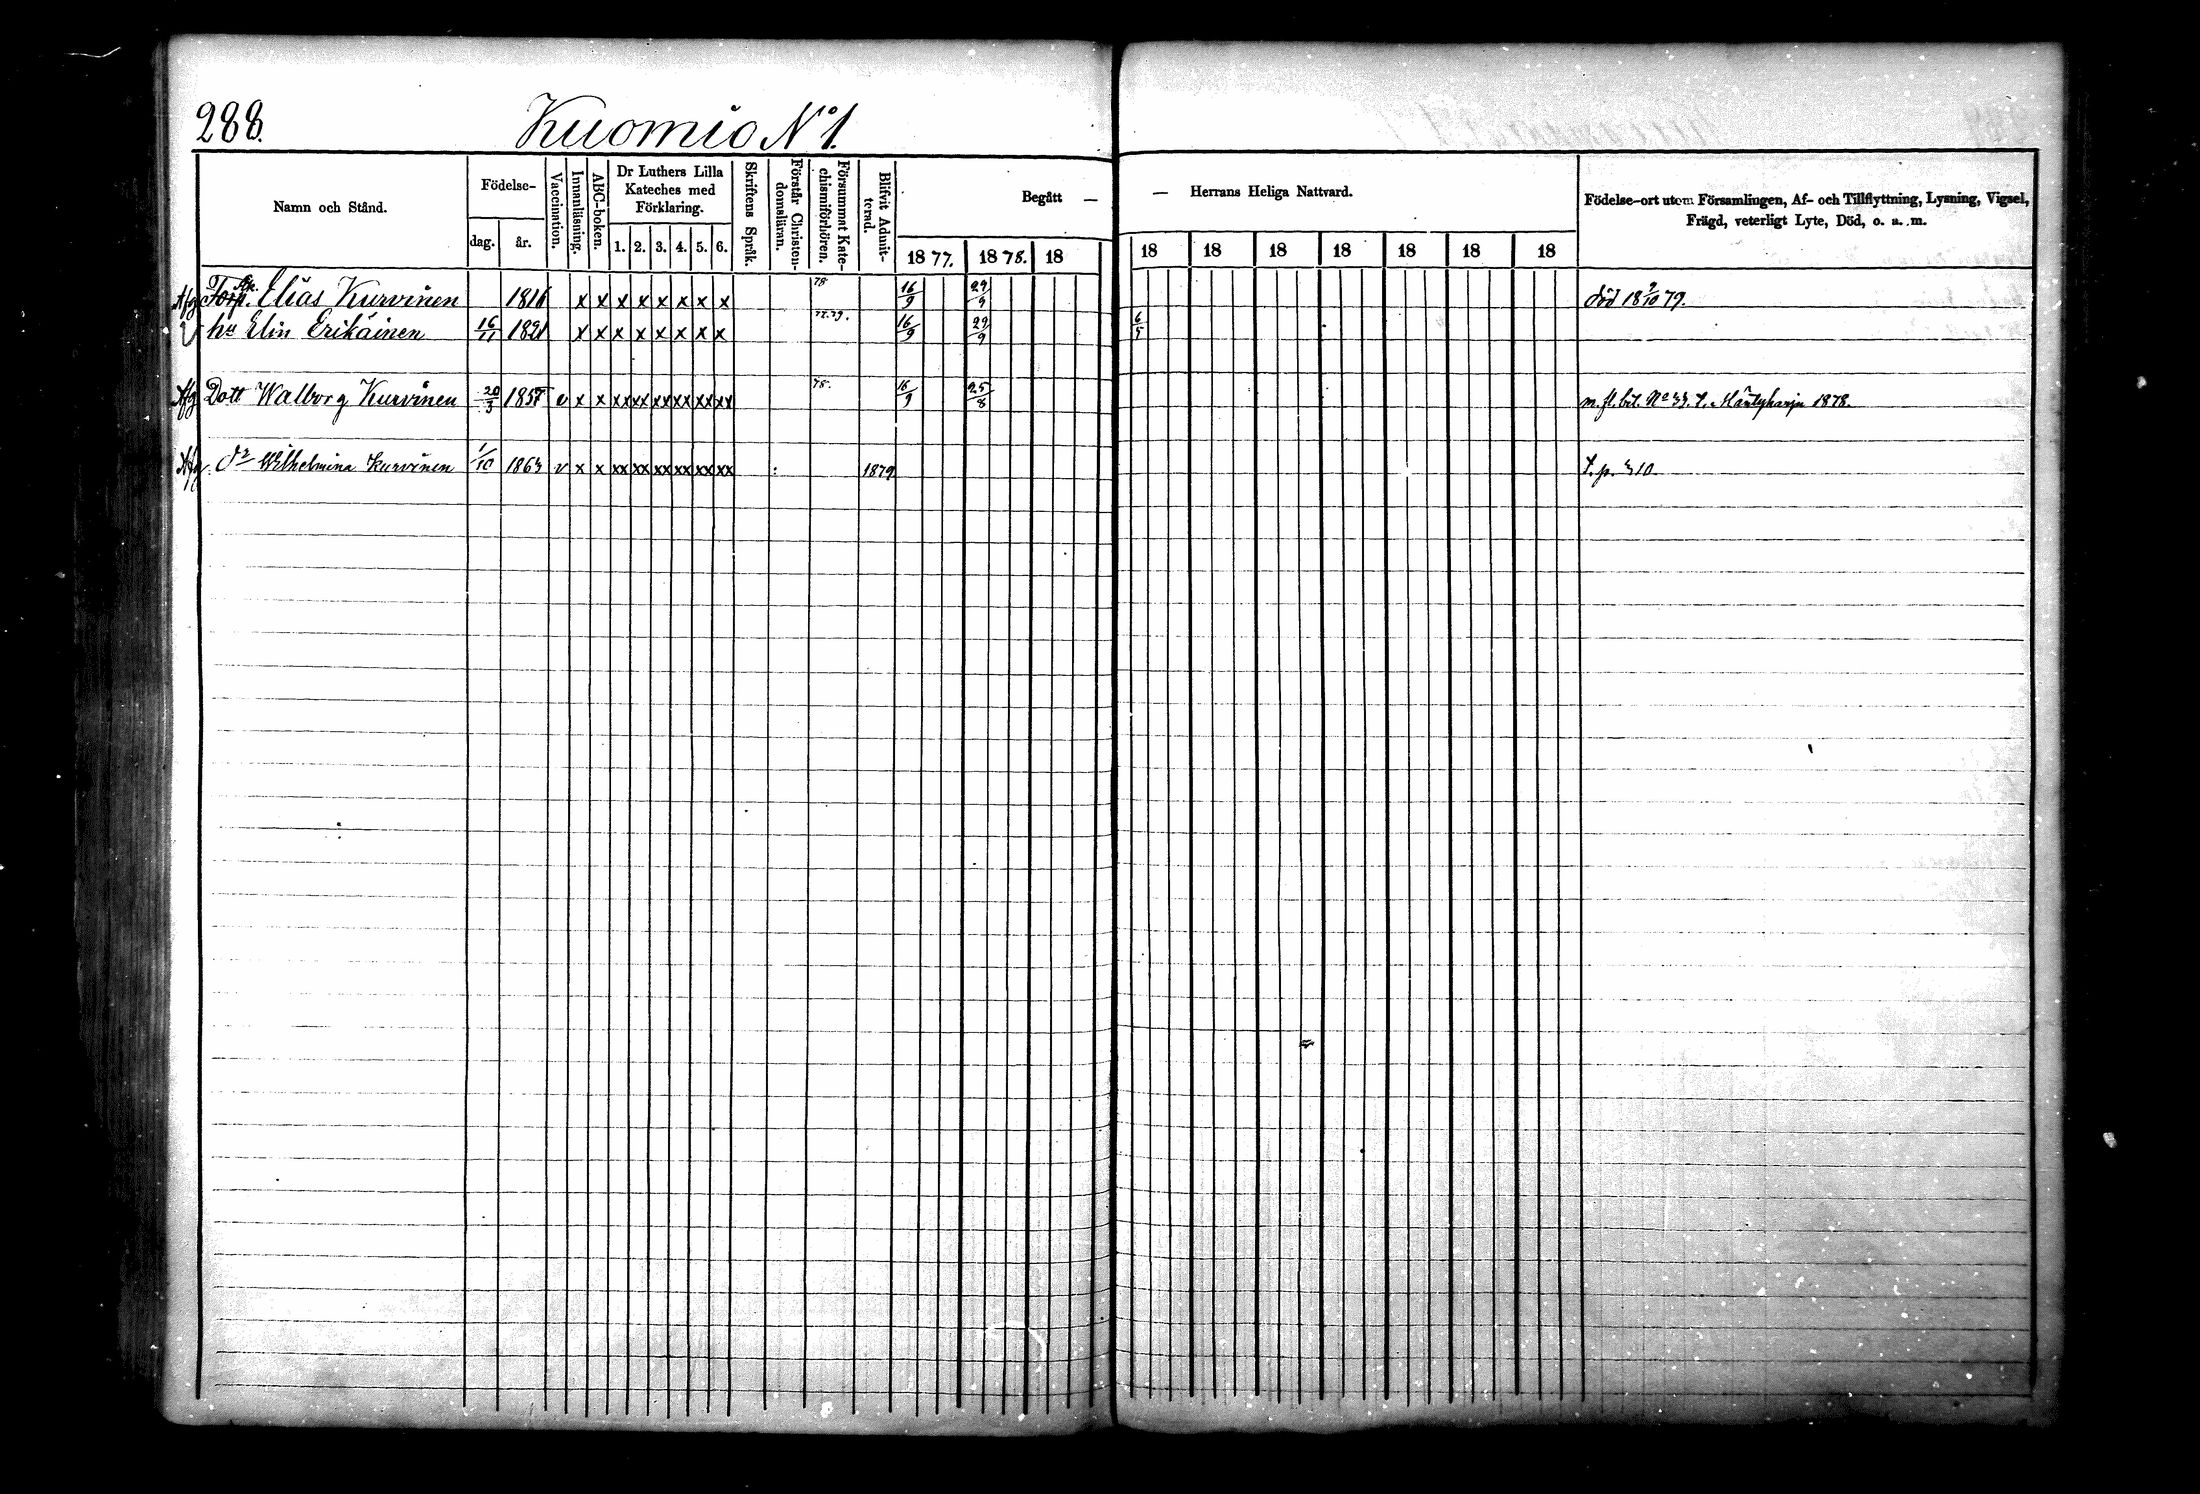 288.
Kuomio No 1.
Namn och Stånd.
Födelse-
dag.
år.
Vaccination.
Innanläsning.
ABC-boken.
Dr Luthers Lilla
Kateches med
Förklaring.
1. 2. 3. 4. 5. 6.
Skriftens Språk.
Förstår Christen-
domsläran.
Försummat Kate-
chismiförhören.
Blifvit Admit-
terad.
Begått —
— Herrans Heliga Nattvard.
18 77. 18 78. 18
18 18 18 18 18 18 18
Födelse-ort utom Församlingen, Af- och Tillflyttning, Lysning, Vigsel,
Frägd, veterligt Lyte, Död, o. a. m.
Afg Torp. Elias Kurvinen 1816 x x x x x x x x 78 16/9 29/9 död 18 2/10 79.
hu Elin Erikäinen 16/11 1821 x x x x x x x x 16/9 29/9 6/5
Afg Dott Walborg Kurvinen 20/3 1857 v x x xx xx xx xx xx xx 78. 16/9 25/8 m. fl. bet. No 33. t. Mäntyharju 1878.
Afg. Dr Wilhelmina Kurvinen 1/10 1863 v x x xx xx xx xx xx xx 1879 t. p. 310.